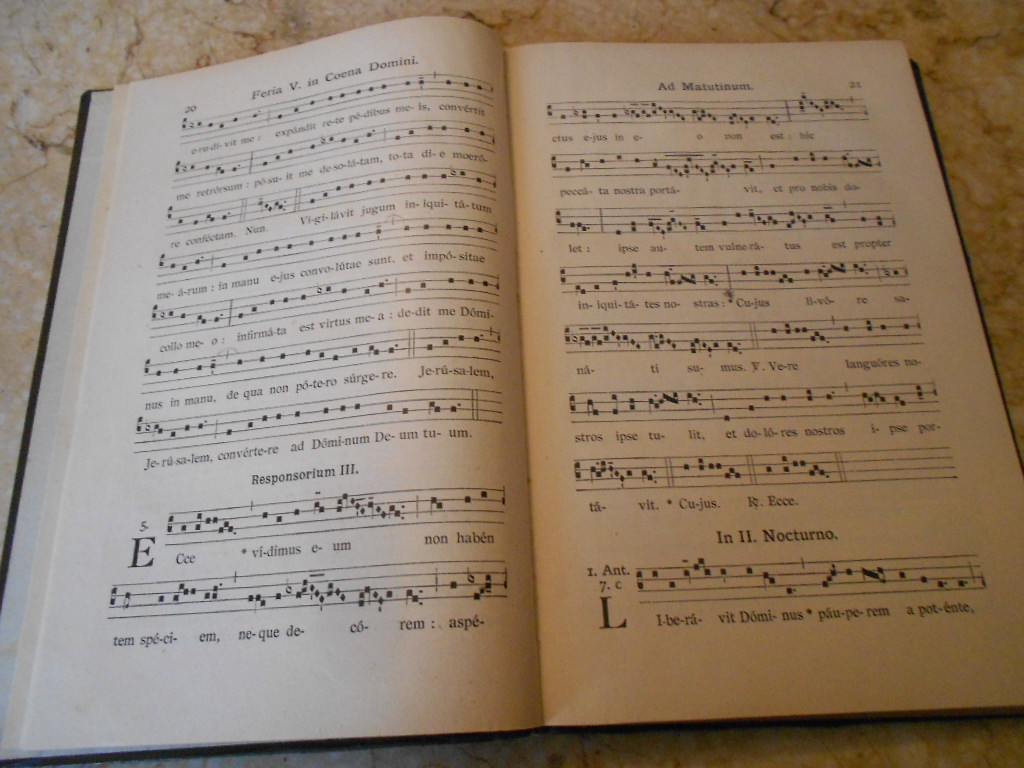 20 Feria V. in Coena Domini.
e-ru-di-vit me: expándit re-te pé-dibus me-is, convértit
me retrórsum: pó-su-it me de-so-lá-tam, to-ta di-e moeró-
re conféctam. Nun. Vi-gi-lávit jugum in-iqui-tá-tum
me-á-rum: in manu e-jus convo-lútae sunt, et impó-sitae
collo me-o: infirmá-ta est virtus me-a: de-dit me Dómi-
nus in manu, de qua non pó-te-ro súrge-re. Je-rú-sa-lem,
Je-rú-sa-lem, convérte-re ad Dómi-num De-um tu-um.
Responsorium III.
5.
E Cce * ví-dimus e-um non habén
tem spé-ci-em, ne-que de-có-rem: aspé-
Ad Matutinum. 21
ctus e-jus in e-o non est: hic
peccá-ta nostra portá-vit, et pro nobis do-
let: ipse au-tem vulne-rá-tus est propter
in-iqui-tá-tes no-stras: * Cu-jus li-vó-re sa-
ná-ti su-mus. ℣. Ve-re languóres no-
stros ipse tu-lit, et do-ló-res nostros i-pse por-
tá-vit. * Cu-jus. ℟. Ecce.
In II. Nocturno.
1. Ant.
7. c
L I-be-rá-vit Dómi-nus * páu-pe-rem a pot-énte,